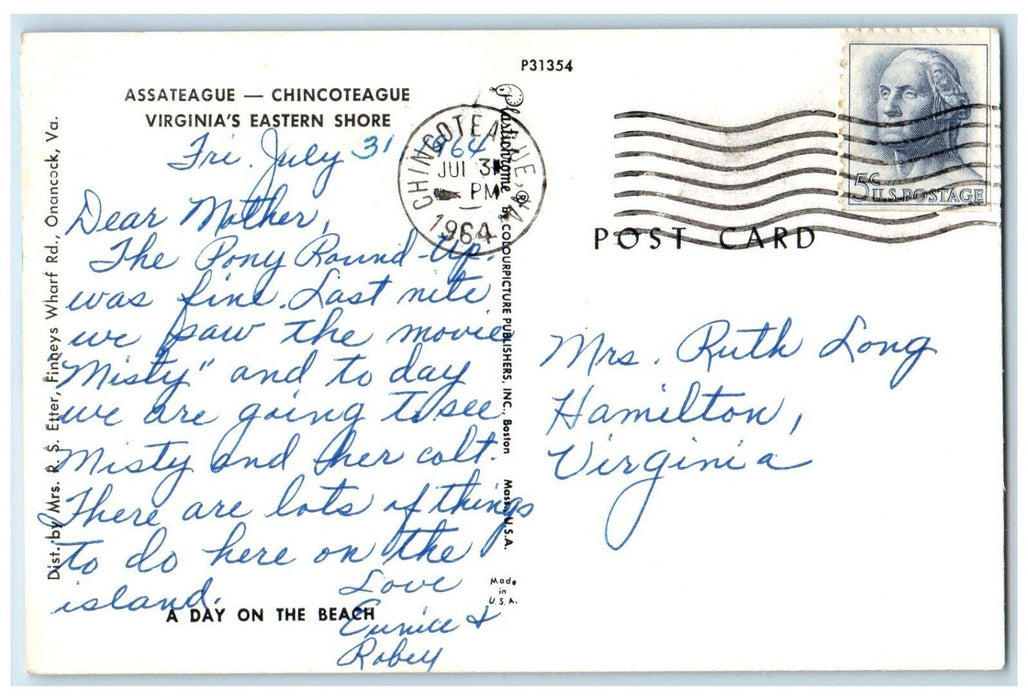 P31354
ASSATEAGUE — CHINCOTEAGUE
VIRGINIA'S EASTERN SHORE
Fri. July 31 1964
Dear Mother,
The Pony Round-up.
was fine. Last nite
we saw the movie
Misty" and to day
we are going to see
Misty and her colt.
There are lots of things
to do here on the
island.
Love
Eunice &
Robey
A DAY ON THE BEACH
Dist. by Mrs. R. S. Etter, Finneys Wharf Rd., Onancock, Va.
Plastichrome ® by COLOURPICTURE PUBLISHERS, INC., Boston Mass., U.S.A.
Made
in
U.S.A.
CHINCOTEAGUE, VA
JUL 31
PM
1964
5c U.S. POSTAGE
POST CARD
Mrs. Ruth Long
Hamilton,
Virginia